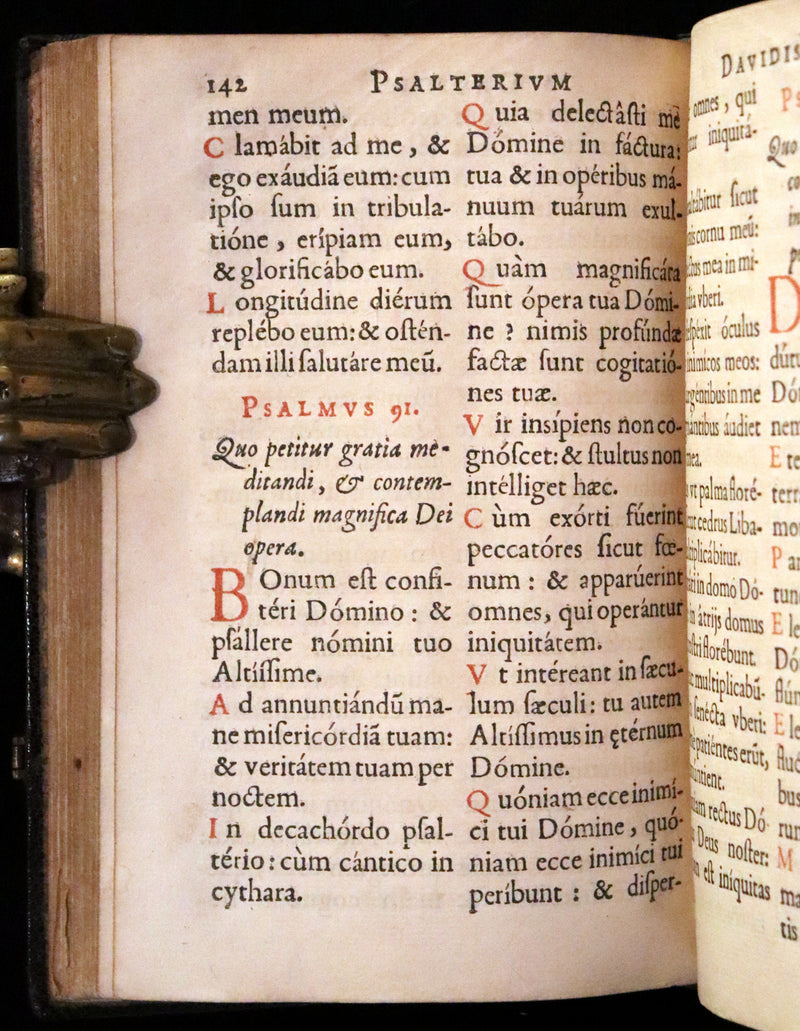 142 PSALTERIVM
men meum.
Clamábit ad me, &
ego exáudiã eum: cum
ipſo ſum in tribula-
tióne, erípiam eum,
& glorificábo eum.
Longitúdine diérum
replébo eum: & oſtén-
dam illi ſalutáre meũ.
PSALMVS 91.
Quo petitur gratia me-
ditandi, & contem-
plandi magnifica Dei
opera.
BOnum eſt confi-
téri Dómino: &
pſállere nómini tuo
Altíſſime.
Ad annuntiándũ ma-
ne miſericórdiã tuam:
& veritátem tuam per
noctem.
In decachórdo pſal-
tério: cùm cántico in
cythara.
Quia delectâſti me
Dómine in fáctura:
tua & in opéribus má-
nuum tuárum exul-
tábo.
Quàm magnificáta
ſunt ópera tua Dómi-
ne ? nimis profúndæ
factæ ſunt cogitatió-
nes tuæ.
Vir inſípiens non co-
gnóſcet: & ſtultus non
intélliget hæc.
Cùm exórti fúerint
peccatóres ſicut fœ-
num: & apparúerint
omnes, qui operántur
iniquitátem.
Vt intéreant in ſæcu-
lum ſæculi: tu autem
Altíſſimus in ętérnum
Dómine.
Quóniam ecce inimí-
ci tui Dómine, quó-
niam ecce inimíci tui
períbunt: & diſper-
DAVIDIS
omnes, qui
iniquitá-
ſicut
cornu meũ:
mea in mi-
vberi.
óculus
inimicos meos:
in me
áudiet
mea.
vt palma floré-
cedrus Liba-
in domo Dó-
in átrijs domus
florébunt.
multiplicabũ-
ſenécta vberi:
patiéntes erũt,
rectus Dó-
Deus noſter:
eſt iníquitas